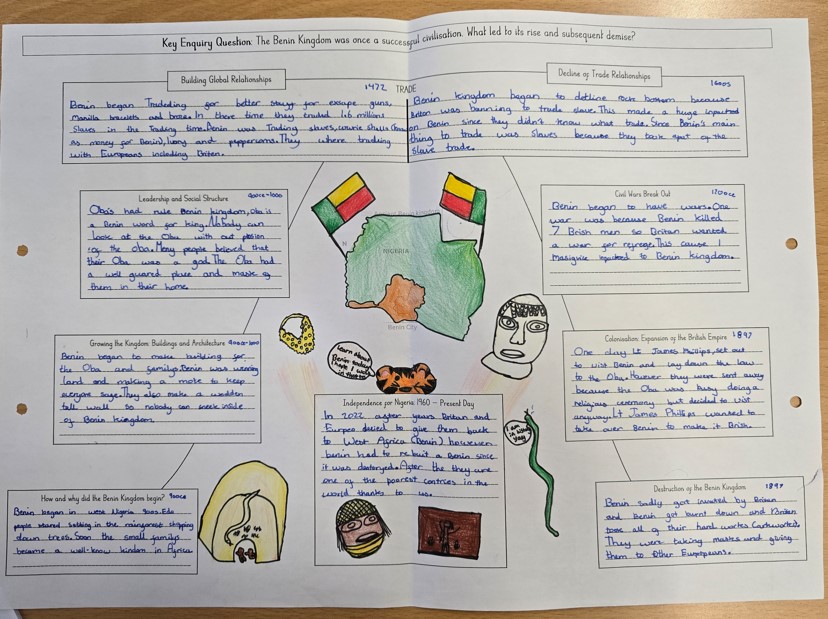 Key Enquiry Question: The Benin Kingdom was once a successful civilisation. What led to its rise and subsequent demise?
Building Global Relationships
1472 TRADE
Benin began Tradeding for better stuff for exsape guns,
Manilla bracelets and brass. In there time they traded 1.6 millions
Slaves in the Trading time. Benin was Trading slaves, cowrie shells (known
as money for Benin), Ivory and peppercorns. They where trading
with Europeans including Briten.
Decline of Trade Relationships
1600s
Benin kingdom began to decline rock bottom because
Briton was banning to trade slave. This made a huge inpacked
on Benin since they didn't know what trade. Since Benin's main
thing to trade was slaves because they took part of the
slave trade.
Leadership and Social Structure
900ce-1000
Oba's had rule Benin kingdom, oba is
a Benin word for king. Nobody can
look at the Oba with out
of the oba. Many people believed that
their Oba was a god. The Oba had
a well guared place and mask of
them in their home.
Civil Wars Break Out
1200ce
Benin began to have wars. One
war was because Benin killed
7 Brish men so Britan wanted
a war for This cause 1
inpacked to Benin kingdom.
NIGERIA
Benin City
Growing the Kingdom: Buildings and Architecture
900ce-1000
Benin began to make building for
the Oba and familys. Benin was
land and making a mote to keep
everyone safe. They also make a wodden
tall wall so nobody can seek inside
of Benin kingdom
Learn about
Benin today
I hope I was
in that
Colonisation: Expansion of the British Empire
1897
One day Lt James Phillips, set out
to vist Benin and lay down the law
to the Oba. However they were sent away
because the Oba was busy doing a
religious ceremony but decided to vist
anyway. Lt James Phillips wanted to
take over Benin to make it Brish.
Independence for Nigeria 1960 – Present Day
In 2022 after years Britan and
Europeo decied to give them back
to West Africa (Benin) however
benin had to rebuit a Benin since
it was destoryed. After the they are
one of the poarest contries in the
world thanks to us.
I am
in
Yay
How and why did the Benin Kingdom begin?
900ce
Benin began in west Nigeria 900s. Edo
people stared settling in the rainforest chipping
down trees. Soon the small familys
became a well-know kindom in Africa.
Destruction of the Benin Kingdom
1897
Benin sadly got invated by Briten
and Benin got burnt down and Briten
tooke all of their hard workes (artworkes).
They were taking maskes and giving
them to Other Europeans.